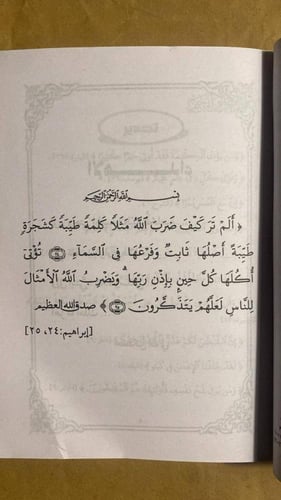 بسم الله الرحمن الرحيم
﴿ أَلَمْ تَرَ كَيْفَ ضَرَبَ ٱللَّهُ مَثَلًا كَلِمَةً طَيِّبَةً كَشَجَرَةٍ
طَيِّبَةٍ أَصْلُهَا ثَابِتٌ وَفَرْعُهَا فِى ٱلسَّمَآءِ ۝٢٤ تُؤْتِىٓ
أُكُلَهَا كُلَّ حِينٍ بِإِذْنِ رَبِّهَا ۗ وَيَضْرِبُ ٱللَّهُ ٱلْأَمْثَالَ
لِلنَّاسِ لَعَلَّهُمْ يَتَذَكَّرُونَ ۝٢٥ ﴾ صدق الله العظيم
[إبراهيم: ٢٤، ٢٥]